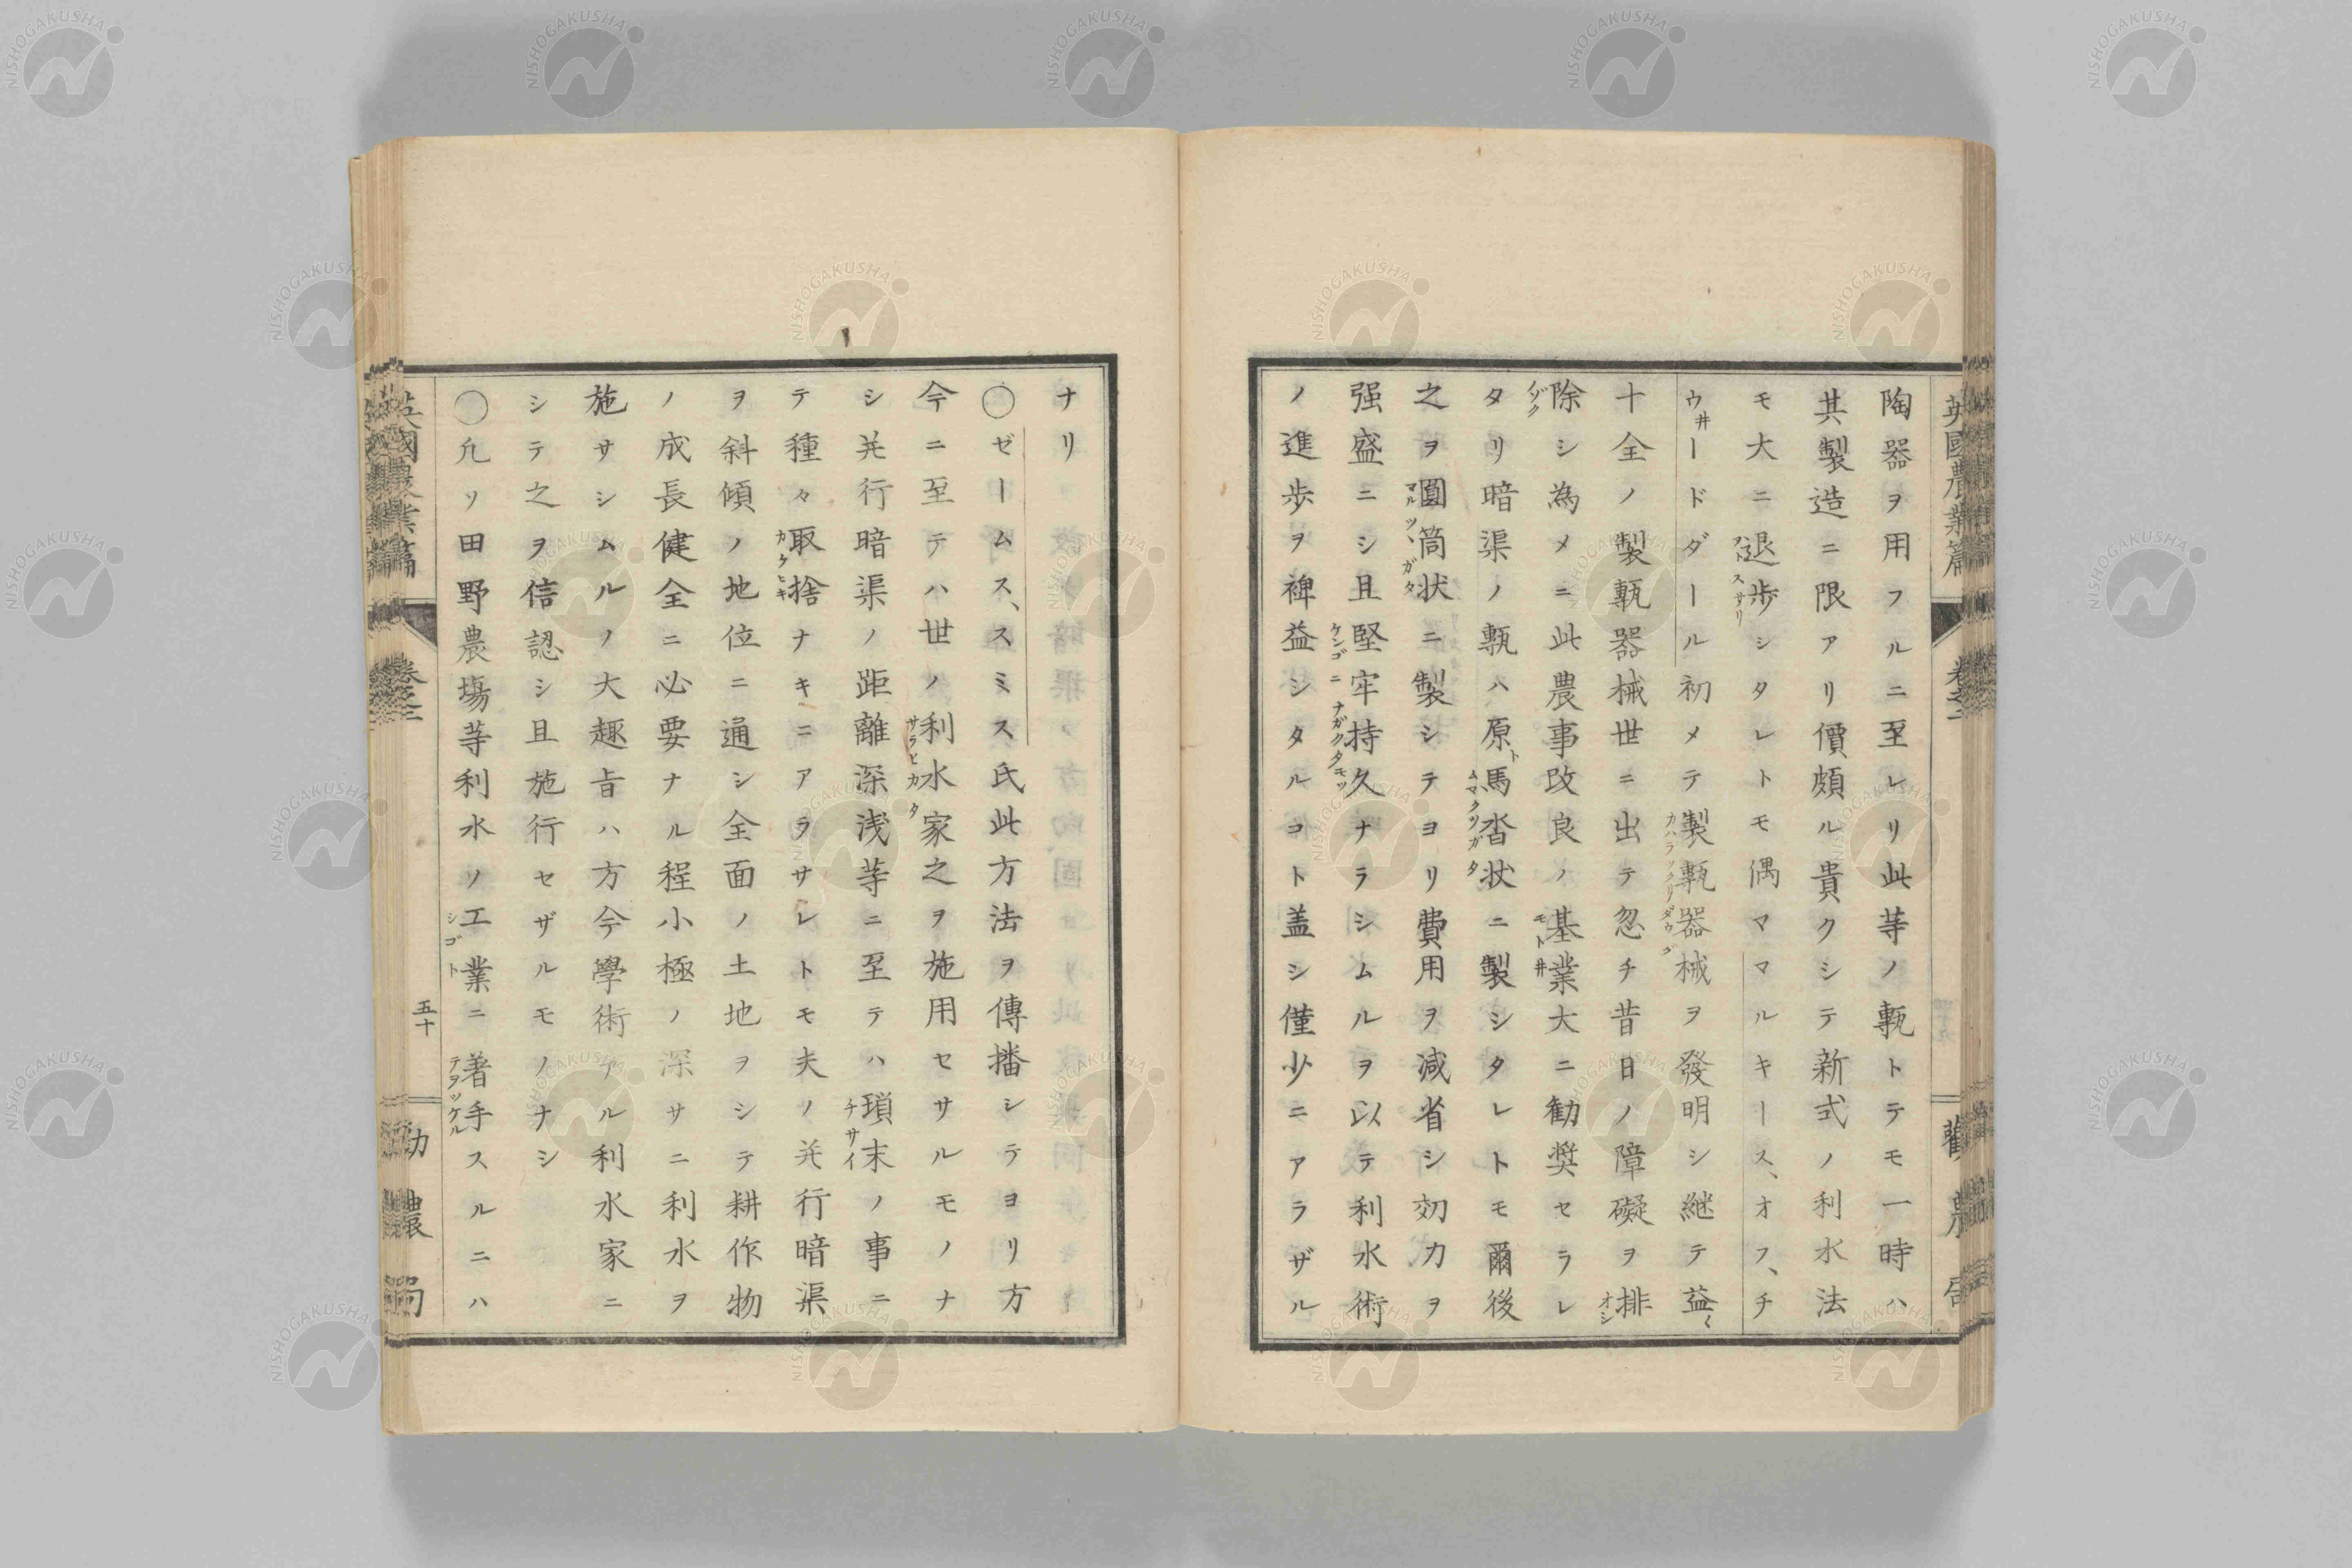 陶器ヲ用フルニ至レリ此等ノ甎トテモ一時ハ
其製造ニ限アリ價頗ル貴クシテ新式ノ利水法
モ大ニ退歩シタレトモ偶マママルキース、オフ、チ
ウ井ードダール初メテ製甎器械ヲ發明シ継テ益〻
十全ノ製甎器械世ニ出テ忽チ昔日ノ障礙ヲ排
除シ為メニ此農事改良ノ基業大ニ勧奨セラレ
タリ暗渠ノ甎ハ原馬沓状ニ製シタレトモ爾後
之ヲ圓筒状ニ製シテヨリ費用ヲ減省シ効力ヲ
强盛ニシ且堅牢持久ナラシムルヲ以テ利水術
ノ進歩ヲ裨益シタルコト盖シ僅少ニアラザル
ナリ
〇ゼームス、スミス氏此方法ヲ傳播シテヨリ方
今ニ至テハ世ノ利水家之ヲ施用セサルモノナ
シ並行暗渠ノ距離深浅等ニ至テハ瑣末ノ事ニ
テ種々取捨ナキニアラサレトモ夫ノ並行暗渠
ヲ斜傾ノ地位ニ通シ全面ノ土地ヲシテ耕作物
ノ成長健全ニ必要ナル程小極ノ深サニ利水ヲ
施サシムルノ大趣旨ハ方今學術アル利水家ニ
シテ之ヲ信認シ且施行セザルモノナシ
〇凡ソ田野農塲等利水ノ工業ニ着手スルニハ
英國農業篇
卷之二
五十
勧農局
NISHOGAKUSHA